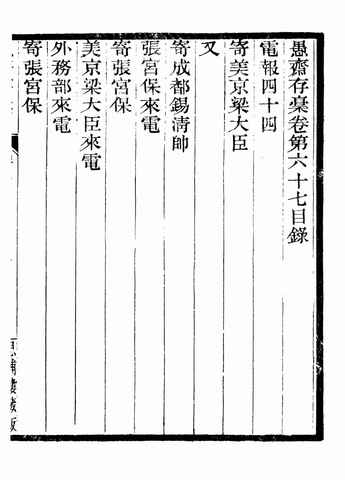 愚齋存稾卷第六十七目錄
電報四十四
寄美京梁大臣
又
寄成都錫清帥
張宮保來電
寄張宮保
美京梁大臣來電
外務部來電
寄張宮保
思補樓藏版